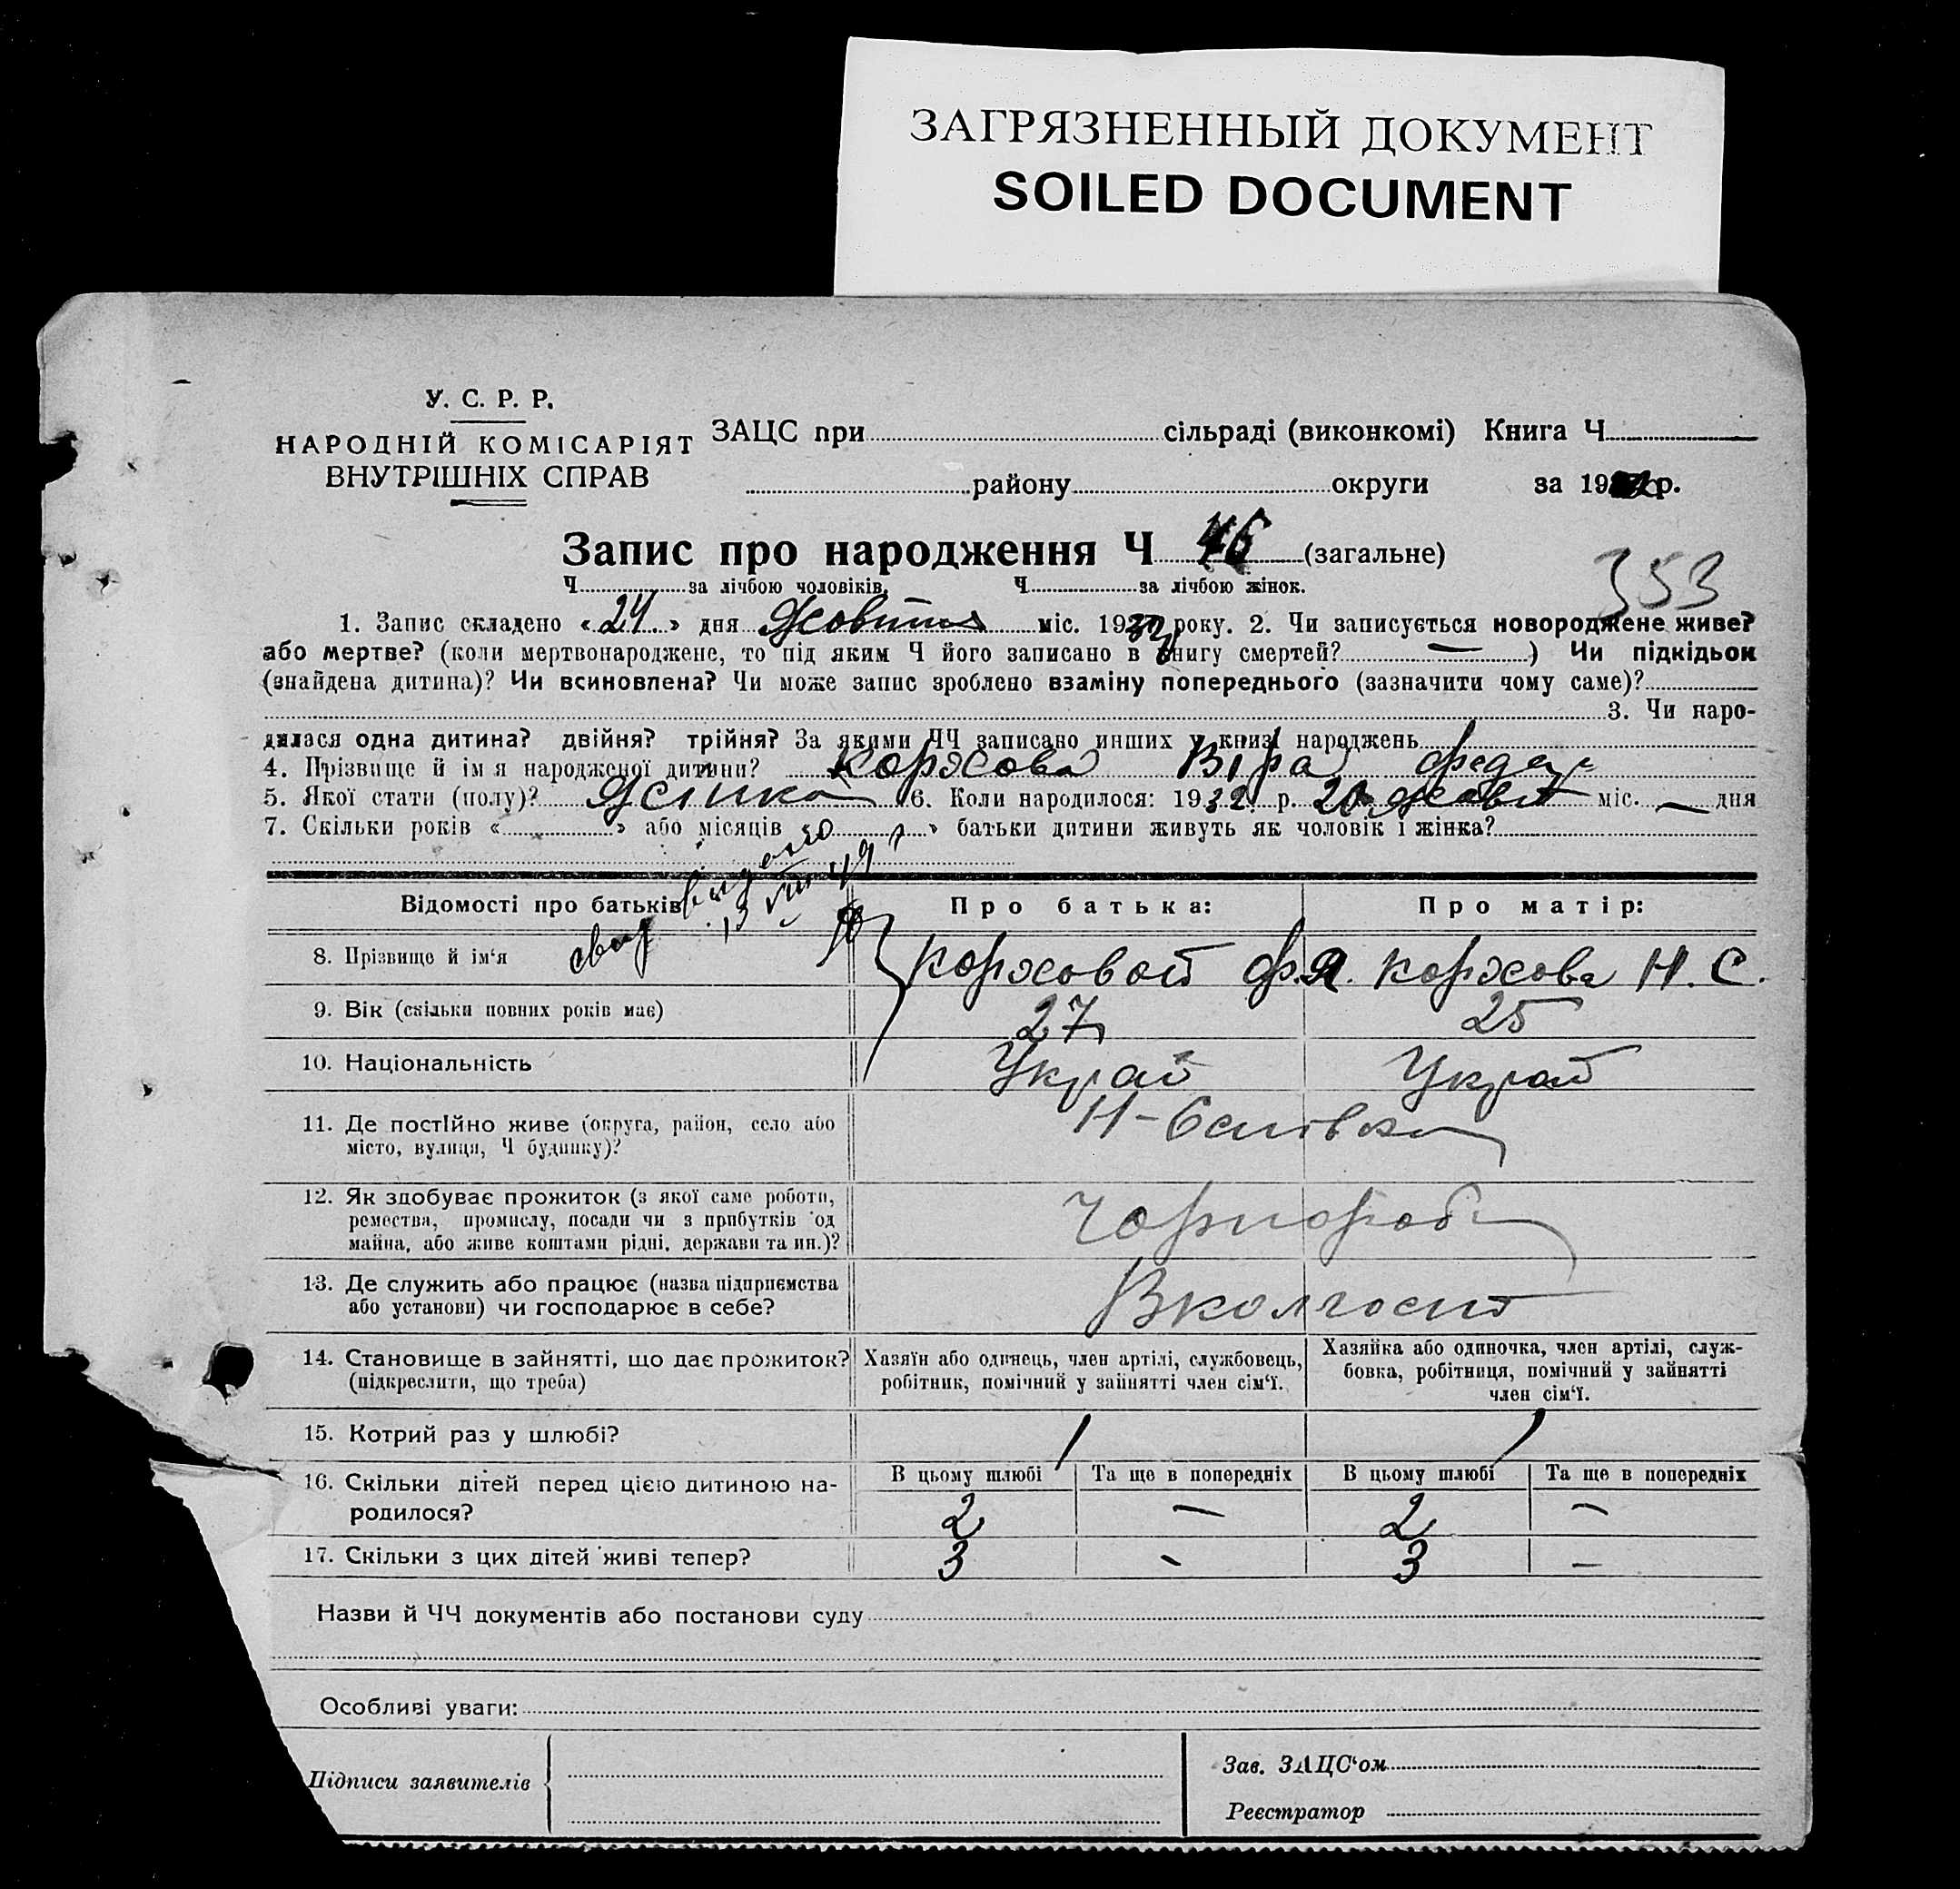 ЗАГРЯЗНЕННЫЙ ДОКУМЕНТ
SOILED DOCUMENT
У. С. Р. Р.
НАРОДНІЙ КОМІСАРІЯТ
ВНУТРІШНІХ СПРАВ
ЗАЦС при сільраді (виконкомі) Книга Ч
району округи за 19 р.
Запис про народження Ч 46 (загальне)
353
Ч за лічбою чоловіків. Ч за лічбою жінок.
1. Запис складено « 24 » дня Жовтня міс. 1932 року. 2. Чи записується новороджене живе?
або мертве? (коли мертвонароджене, то під яким Ч його записано в книгу смертей? — ) Чи підкідьок
(знайдена дитина)? Чи всиновлена? Чи може запис зроблено взаміну попереднього (зазначити чому саме)?
3. Чи наро-
дилася одна дитина? двійня? трійня? За якими ЧЧ записано инших у книзі народжень
4. Прізвище й ім'я народженої дитини? Коржова Віра Федор
5. Якої стати (полу)? Жінка 6. Коли народилося: 1932 р. 20 жовт міс. — дня
7. Скільки років « » або місяців « » батьки дитини живуть як чоловік і жінка?
свид видано
13 VIII 49
Відомості про батьків Про батька: Про матір:
8. Прізвище й ім'я Коржовой Ф.Я. Коржова Н. С.
9. Вік (скільки повних років має) 27 25
10. Національність Украй Украй
11. Де постійно живе (округа, район, село або
місто, вулиця, Ч будинку)?
12. Як здобуває прожиток (з якої саме роботи,
ремества, промислу, посади чи з прибутків од
майна, або живе коштами рідні, держави та ин.)?
Чорнороб
13. Де служить або працює (назва підприємства
або установи) чи господарює в себе?
В колгоспі
14. Становище в зайнятті, що дає прожиток?
(підкреслити, що треба)
Хазяїн або одинець, член артілі, службовець,
робітник, помічний у зайнятті член сім'ї.
Хазяйка або одиночка, член артілі, служ-
бовка, робітниця, помічний у зайнятті
член сім'ї.
15. Котрий раз у шлюбі? 1 1
16. Скільки дітей перед цією дитиною на-
родилося?
В цьому шлюбі Та ще в попередніх В цьому шлюбі Та ще в попередніх
2 — 2 —
17. Скільки з цих дітей живі тепер? 3 - 3 —
Назви й ЧЧ документів або постанови суду
Особливі уваги:
Підписи заявителів
Зав. ЗАЦС'ом
Реєстратор